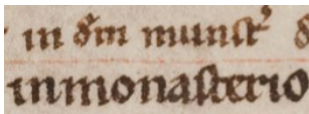 in dm̄ munſt᷒
inmonaſterio